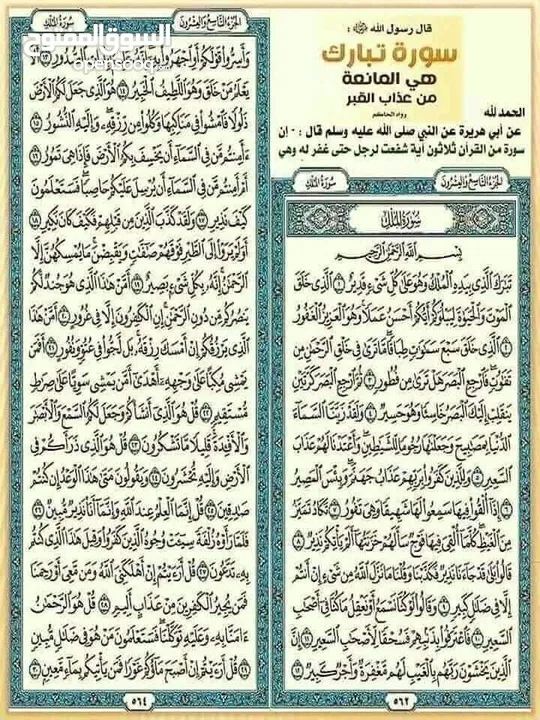 قال رسول الله ﷺ :
سورة تبارك
هي المانعة
من عذاب القبر
رواه الحاكم
الحمدلله
عن أبي هريرة عن النبي صلى الله عليه وسلم قال : - إن
سورة من القرآن ثلاثون آية شفعت لرجل حتى غفر له وهي
الجزء التاسع والعشرون سورة الملك
سورة الملك
بسم الله الرحمن الرحيم
تَبَٰرَكَ ٱلَّذِي بِيَدِهِ ٱلْمُلْكُ وَهُوَ عَلَىٰ كُلِّ شَيْءٍ قَدِيرٌ ١ ٱلَّذِي خَلَقَ
ٱلْمَوْتَ وَٱلْحَيَوٰةَ لِيَبْلُوَكُمْ أَيُّكُمْ أَحْسَنُ عَمَلًا وَهُوَ ٱلْعَزِيزُ ٱلْغَفُورُ
٢ ٱلَّذِي خَلَقَ سَبْعَ سَمَٰوَٰتٍ طِبَاقًا مَّا تَرَىٰ فِي خَلْقِ ٱلرَّحْمَٰنِ مِن
تَفَٰوُتٍ فَٱرْجِعِ ٱلْبَصَرَ هَلْ تَرَىٰ مِن فُطُورٍ ٣ ثُمَّ ٱرْجِعِ ٱلْبَصَرَ كَرَّتَيْنِ
يَنقَلِبْ إِلَيْكَ ٱلْبَصَرُ خَاسِئًا وَهُوَ حَسِيرٌ ٤ وَلَقَدْ زَيَّنَّا ٱلسَّمَآءَ
ٱلدُّنْيَا بِمَصَٰبِيحَ وَجَعَلْنَٰهَا رُجُومًا لِّلشَّيَٰطِينِ وَأَعْتَدْنَا لَهُمْ عَذَابَ
ٱلسَّعِيرِ ٥ وَلِلَّذِينَ كَفَرُوا۟ بِرَبِّهِمْ عَذَابُ جَهَنَّمَ وَبِئْسَ ٱلْمَصِيرُ
٦ إِذَآ أُلْقُوا۟ فِيهَا سَمِعُوا۟ لَهَا شَهِيقًا وَهِيَ تَفُورُ ٧ تَكَادُ تَمَيَّزُ
مِنَ ٱلْغَيْظِ كُلَّمَآ أُلْقِيَ فِيهَا فَوْجٌ سَأَلَهُمْ خَزَنَتُهَآ أَلَمْ يَأْتِكُمْ نَذِيرٌ ٨
قَالُوا۟ بَلَىٰ قَدْ جَآءَنَا نَذِيرٌ فَكَذَّبْنَا وَقُلْنَا مَا نَزَّلَ ٱللَّهُ مِن شَيْءٍ إِنْ أَنتُمْ
إِلَّا فِي ضَلَٰلٍ كَبِيرٍ ٩ وَقَالُوا۟ لَوْ كُنَّا نَسْمَعُ أَوْ نَعْقِلُ مَا كُنَّا فِيٓ أَصْحَٰبِ
ٱلسَّعِيرِ ١٠ فَٱعْتَرَفُوا۟ بِذَنۢبِهِمْ فَسُحْقًا لِّأَصْحَٰبِ ٱلسَّعِيرِ ١١ إِنَّ
ٱلَّذِينَ يَخْشَوْنَ رَبَّهُم بِٱلْغَيْبِ لَهُم مَّغْفِرَةٌ وَأَجْرٌ كَبِيرٌ ١٢
٥٦٢
الجزء التاسع والعشرون سورة الملك
السوق المفتوح
opensooq.com
وَأَسِرُّوا۟ قَوْلَكُمْ أَوِ ٱجْهَرُوا۟ بِهِۦٓ إِنَّهُۥ عَلِيمٌۢ بِذَاتِ ٱلصُّدُورِ ١٣ أَلَا
يَعْلَمُ مَنْ خَلَقَ وَهُوَ ٱللَّطِيفُ ٱلْخَبِيرُ ١٤ هُوَ ٱلَّذِي جَعَلَ لَكُمُ ٱلْأَرْضَ
ذَلُولًا فَٱمْشُوا۟ فِي مَنَاكِبِهَا وَكُلُوا۟ مِن رِّزْقِهِۦ وَإِلَيْهِ ٱلنُّشُورُ ١٥
ءَأَمِنتُم مَّن فِي ٱلسَّمَآءِ أَن يَخْسِفَ بِكُمُ ٱلْأَرْضَ فَإِذَا هِيَ تَمُورُ ١٦
أَمْ أَمِنتُم مَّن فِي ٱلسَّمَآءِ أَن يُرْسِلَ عَلَيْكُمْ حَاصِبًا فَسَتَعْلَمُونَ
كَيْفَ نَذِيرِ ١٧ وَلَقَدْ كَذَّبَ ٱلَّذِينَ مِن قَبْلِهِمْ فَكَيْفَ كَانَ نَكِيرِ ١٨
أَوَلَمْ يَرَوْا۟ إِلَى ٱلطَّيْرِ فَوْقَهُمْ صَٰٓفَّٰتٍ وَيَقْبِضْنَ مَا يُمْسِكُهُنَّ إِلَّا
ٱلرَّحْمَٰنُ إِنَّهُۥ بِكُلِّ شَيْءٍۭ بَصِيرٌ ١٩ أَمَّنْ هَٰذَا ٱلَّذِي هُوَ جُندٌ لَّكُمْ
يَنصُرُكُم مِّن دُونِ ٱلرَّحْمَٰنِ إِنِ ٱلْكَٰفِرُونَ إِلَّا فِي غُرُورٍ ٢٠ أَمَّنْ هَٰذَا
ٱلَّذِي يَرْزُقُكُمْ إِنْ أَمْسَكَ رِزْقَهُۥ بَل لَّجُّوا۟ فِي عُتُوٍّ وَنُفُورٍ ٢١ أَفَمَن
يَمْشِي مُكِبًّا عَلَىٰ وَجْهِهِۦٓ أَهْدَىٰٓ أَمَّن يَمْشِي سَوِيًّا عَلَىٰ صِرَٰطٍ
مُّسْتَقِيمٍ ٢٢ قُلْ هُوَ ٱلَّذِيٓ أَنشَأَكُمْ وَجَعَلَ لَكُمُ ٱلسَّمْعَ وَٱلْأَبْصَٰرَ
وَٱلْأَفْـِٔدَةَ قَلِيلًا مَّا تَشْكُرُونَ ٢٣ قُلْ هُوَ ٱلَّذِي ذَرَأَكُمْ فِي
ٱلْأَرْضِ وَإِلَيْهِ تُحْشَرُونَ ٢٤ وَيَقُولُونَ مَتَىٰ هَٰذَا ٱلْوَعْدُ إِن كُنتُمْ
صَٰدِقِينَ ٢٥ قُلْ إِنَّمَا ٱلْعِلْمُ عِندَ ٱللَّهِ وَإِنَّمَآ أَنَا۠ نَذِيرٌ مُّبِينٌ ٢٦
فَلَمَّا رَأَوْهُ زُلْفَةً سِيٓـَٔتْ وُجُوهُ ٱلَّذِينَ كَفَرُوا۟ وَقِيلَ هَٰذَا ٱلَّذِي كُنتُم
بِهِۦ تَدَّعُونَ ٢٧ قُلْ أَرَءَيْتُمْ إِنْ أَهْلَكَنِيَ ٱللَّهُ وَمَن مَّعِيَ أَوْ رَحِمَنَا
فَمَن يُجِيرُ ٱلْكَٰفِرِينَ مِنْ عَذَابٍ أَلِيمٍ ٢٨ قُلْ هُوَ ٱلرَّحْمَٰنُ
ءَامَنَّا بِهِۦ وَعَلَيْهِ تَوَكَّلْنَا فَسَتَعْلَمُونَ مَنْ هُوَ فِي ضَلَٰلٍ مُّبِينٍ
٢٩ قُلْ أَرَءَيْتُمْ إِنْ أَصْبَحَ مَآؤُكُمْ غَوْرًا فَمَن يَأْتِيكُم بِمَآءٍ مَّعِينٍۭ ٣٠
٥٦٤